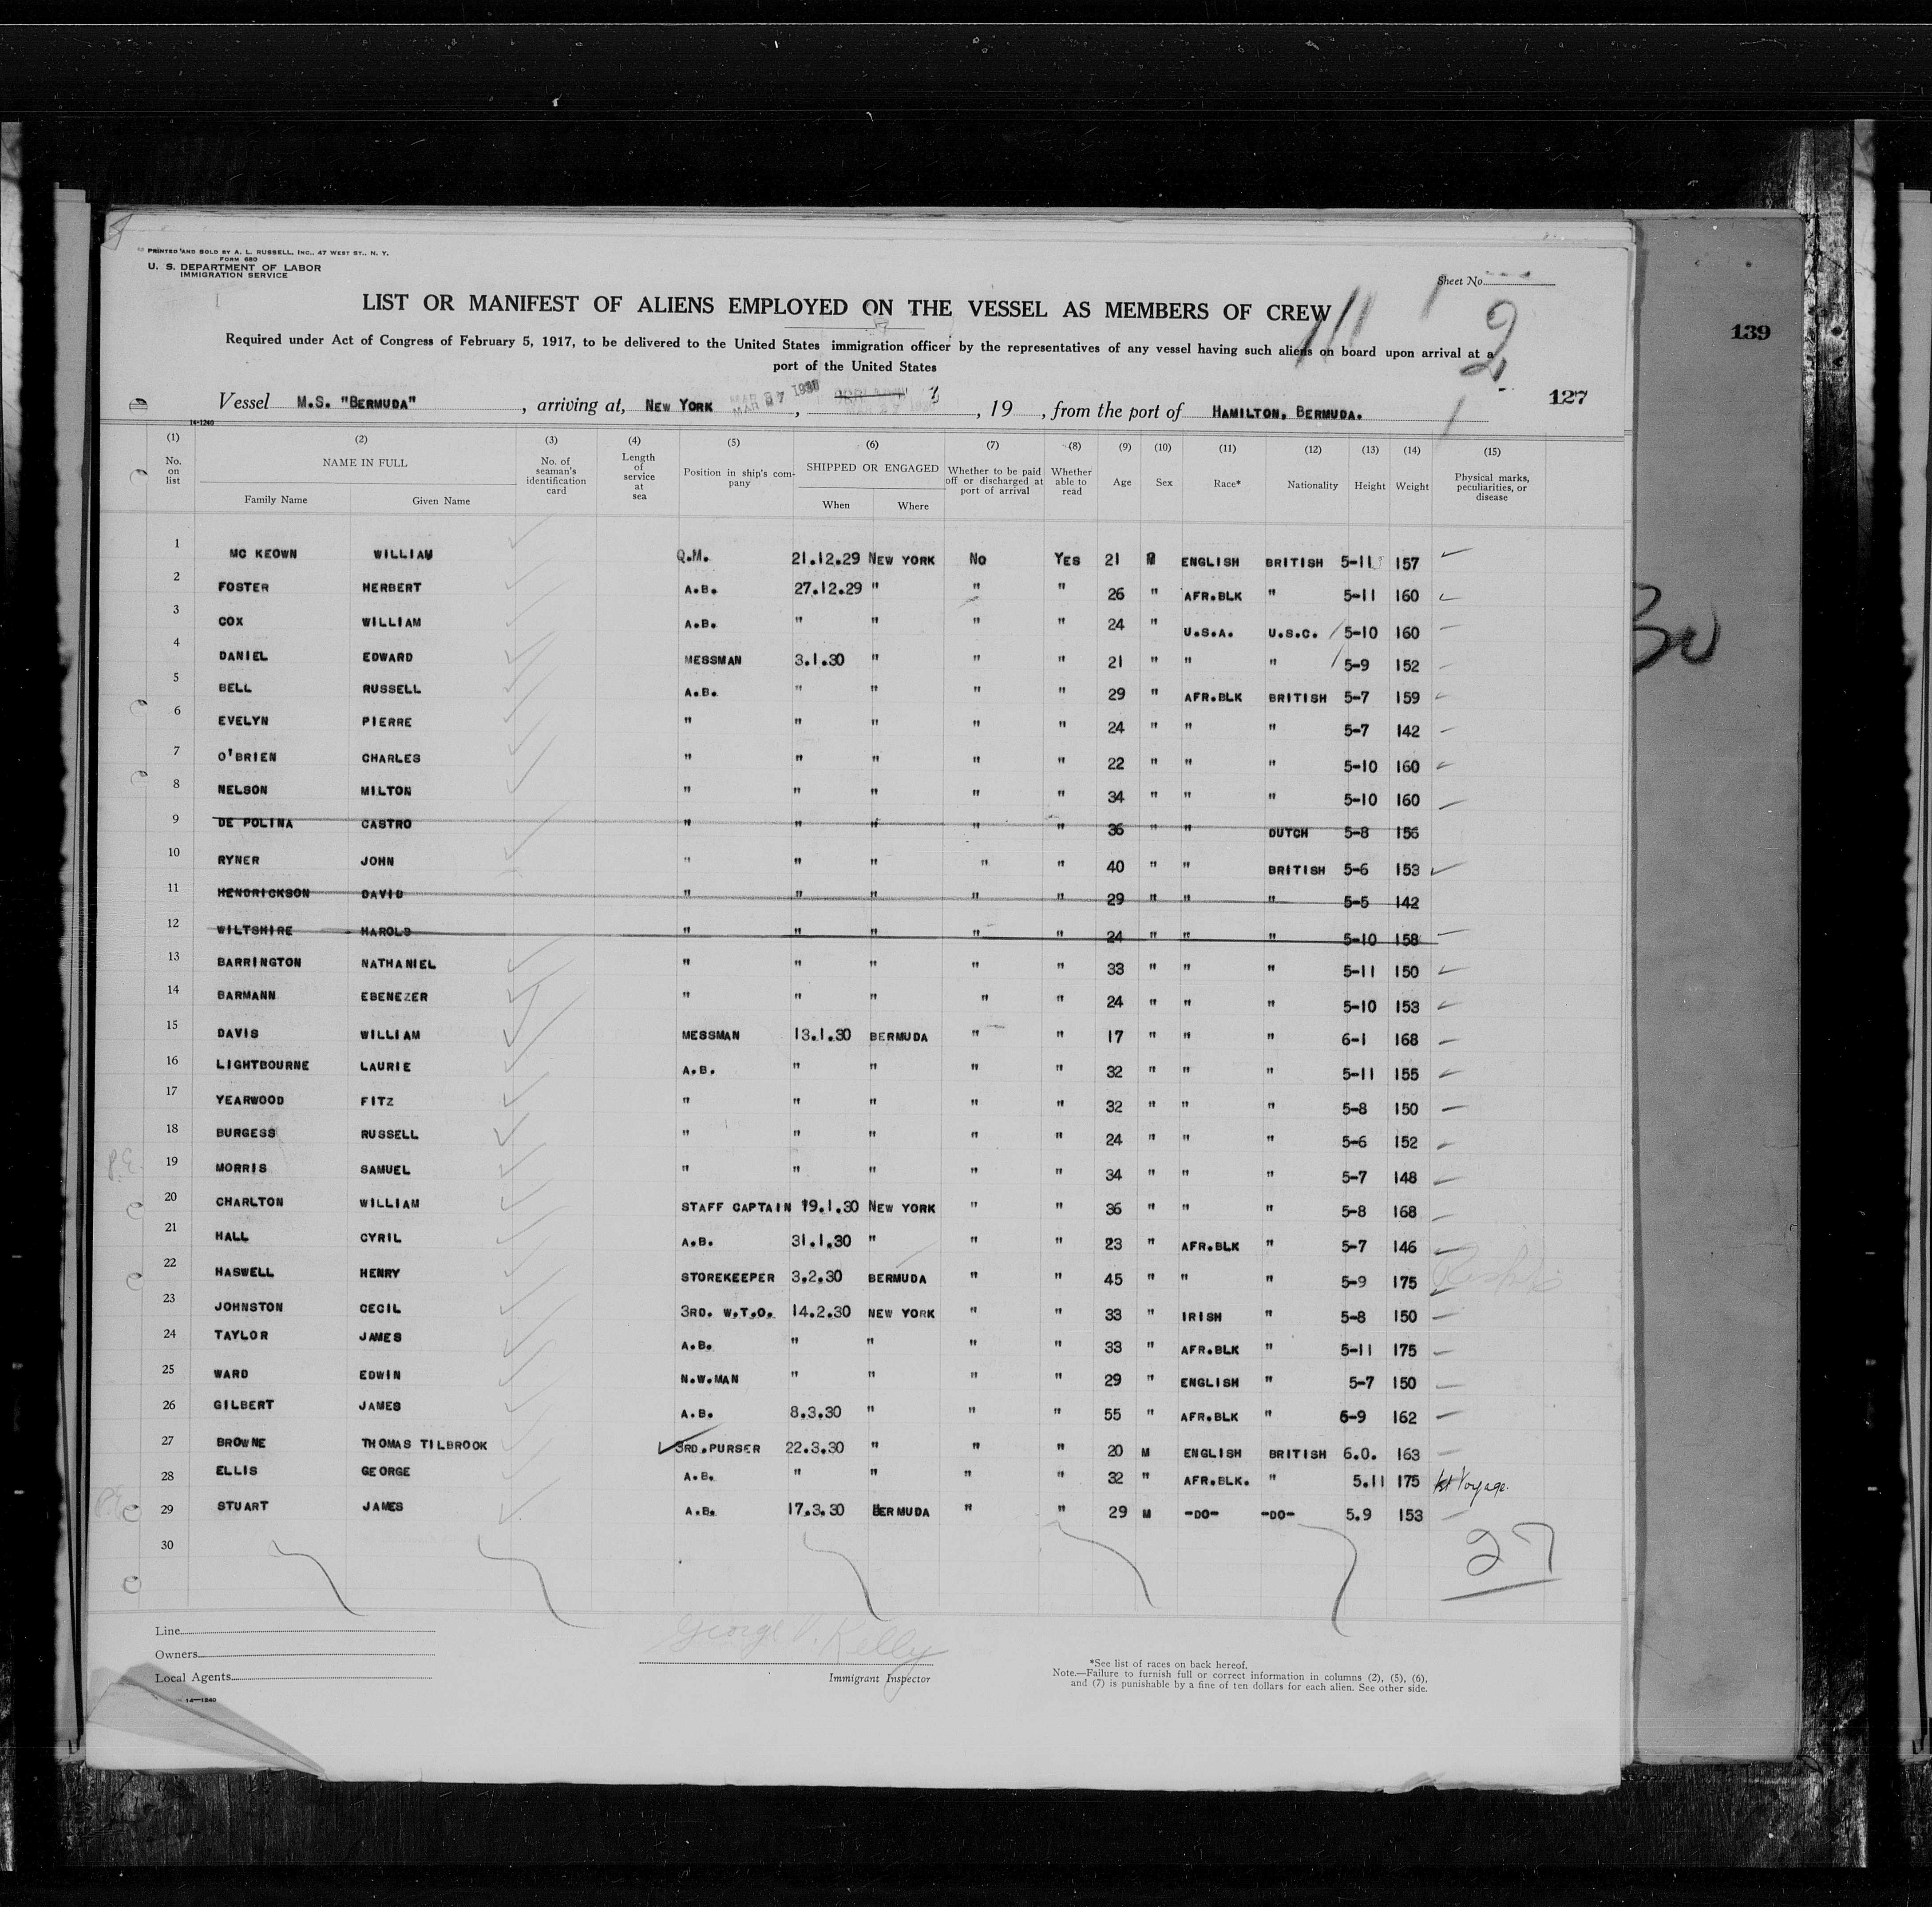 PRINTED AND SOLD BY A. L. RUSSELL, INC., 47 WEST ST., N. Y.
FORM 680
U. S. DEPARTMENT OF LABOR
IMMIGRATION SERVICE
Sheet No.
LIST OR MANIFEST OF ALIENS EMPLOYED ON THE VESSEL AS MEMBERS OF CREW
111
2
139
Required under Act of Congress of February 5, 1917, to be delivered to the United States immigration officer by the representatives of any vessel having such aliens on board upon arrival at a
port of the United States
127
Vessel M.S. "BERMUDA", arriving at, NEW YORK MAR 27 1930, , 19 , from the port of HAMILTON, BERMUDA.
14-1240
(1) (2) (3) (4) (5) (6) (7) (8) (9) (10) (11) (12) (13) (14) (15)
No. on list NAME IN FULL Family Name Given Name No. of seaman's identification card Length of service at sea Position in ship's company SHIPPED OR ENGAGED When Where Whether to be paid off or discharged at port of arrival Whether able to read Age Sex Race* Nationality Height Weight Physical marks, peculiarities, or disease
1 MC KEOWN WILLIAM Q.M. 21.12.29 NEW YORK NO YES 21 M ENGLISH BRITISH 5-11 157
2 FOSTER HERBERT A.B. 27.12.29 " " " 26 " AFR.BLK " 5-11 160
3 COX WILLIAM A.B. " " " " 24 " U.S.A. U.S.C. 5-10 160
4 DANIEL EDWARD MESSMAN 3.1.30 " " " 21 " " " 5-9 152
5 BELL RUSSELL A.B. " " " " 29 " AFR.BLK BRITISH 5-7 159
6 EVELYN PIERRE " " " " " 24 " " " 5-7 142
7 O'BRIEN CHARLES " " " " " 22 " " " 5-10 160
8 NELSON MILTON " " " " " 34 " " " 5-10 160
9 DE POLINA CASTRO " " " " " 36 " " DUTCH 5-8 156
10 RYNER JOHN " " " " " 40 " " BRITISH 5-6 153
11 HENDRICKSON DAVID " " " " " 29 " " " 5-5 142
12 WILTSHIRE HAROLD " " " " " 24 " " " 5-10 158
13 BARRINGTON NATHANIEL " " " " " 33 " " " 5-11 150
14 BARMANN EBENEZER " " " " " 24 " " " 5-10 153
15 DAVIS WILLIAM MESSMAN 13.1.30 BERMUDA " " 17 " " " 6-1 168
16 LIGHTBOURNE LAURIE A.B. " " " " 32 " " " 5-11 155
17 YEARWOOD FITZ " " " " " 32 " " " 5-8 150
18 BURGESS RUSSELL " " " " " 24 " " " 5-6 152
19 MORRIS SAMUEL " " " " " 34 " " " 5-7 148
20 CHARLTON WILLIAM STAFF CAPTAIN 19.1.30 NEW YORK " " 36 " " " 5-8 168
21 HALL CYRIL A.B. 31.1.30 " " " 23 " AFR.BLK " 5-7 146
22 HASWELL HENRY STOREKEEPER 3.2.30 BERMUDA " " 45 " " " 5-9 175
23 JOHNSTON CECIL 3RD. W.T.O. 14.2.30 NEW YORK " " 33 " IRISH " 5-8 150
24 TAYLOR JAMES A.B. " " " " 33 " AFR.BLK " 5-11 175
25 WARD EDWIN N.W.MAN " " " " 29 " ENGLISH " 5-7 150
26 GILBERT JAMES A.B. 8.3.30 " " " 55 " AFR.BLK " 5-9 162
27 BROWNE THOMAS TILBROOK 3RD.PURSER 22.3.30 " " " 20 M ENGLISH BRITISH 6.0. 163
28 ELLIS GEORGE A.B. " " " " 32 " AFR.BLK. " 5.11 175 1st Voyage.
29 STUART JAMES A.B. 17.3.30 BERMUDA " " 29 M -DO- -DO- 5.9 153
30
27
Line
Owners
Local Agents
14-1240
George V. Kelly
Immigrant Inspector
*See list of races on back hereof.
Note.—Failure to furnish full or correct information in columns (2), (5), (6),
and (7) is punishable by a fine of ten dollars for each alien. See other side.